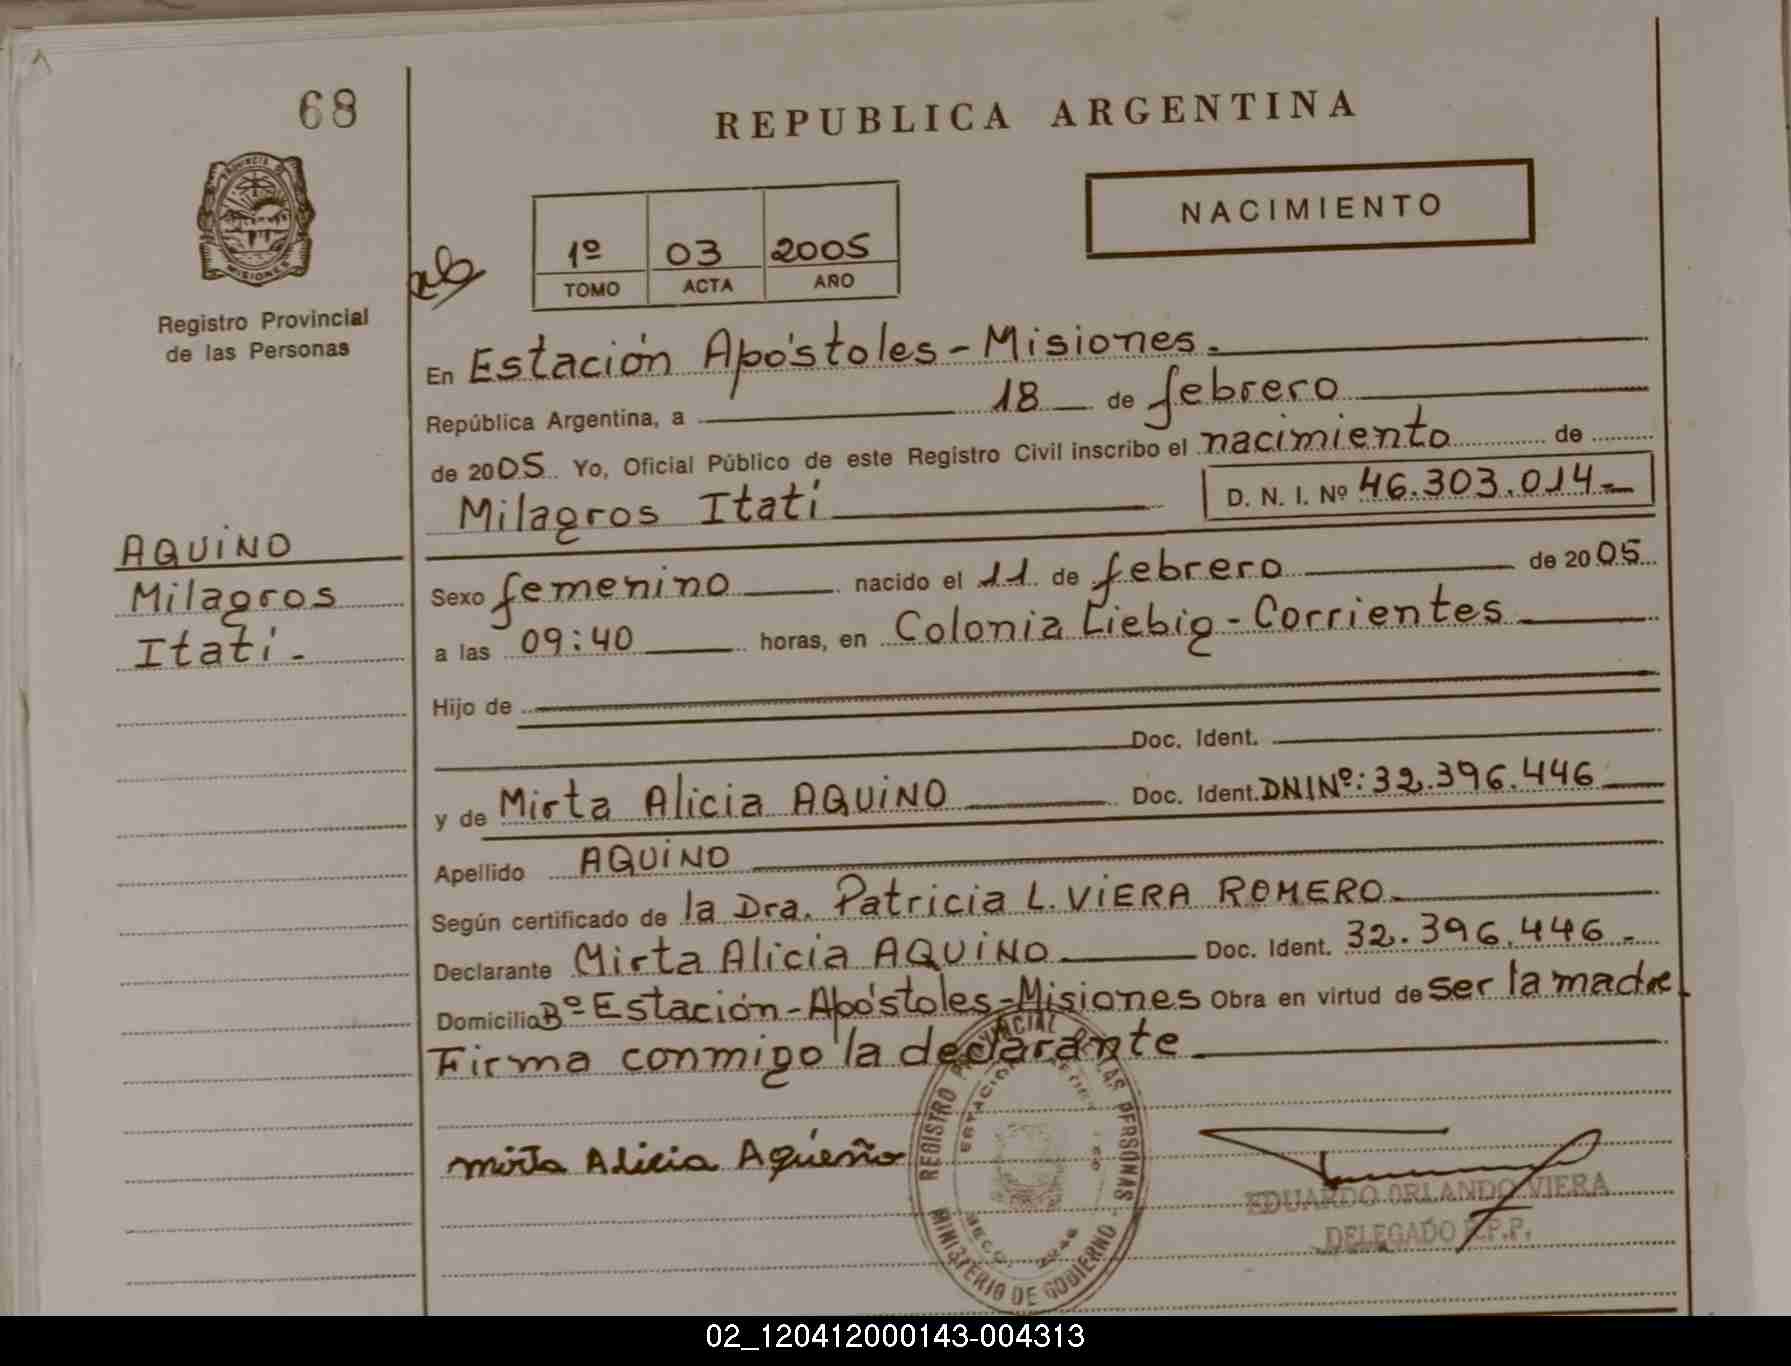 68
REPUBLICA ARGENTINA
PROVINCIA DE
MISIONES
Registro Provincial
de las Personas
1º 03 2005
TOMO ACTA AÑO
NACIMIENTO
En Estación Apóstoles - Misiones.
República Argentina, a 18 de febrero
de 2005. Yo, Oficial Público de este Registro Civil inscribo el nacimiento de
Milagros Itatí D. N. I. Nº 46.303.014-
AQUINO
Milagros
Itatí.-
Sexo femenino nacido el 11 de febrero de 2005
a las 09:40 horas, en Colonia Liebig - Corrientes
Hijo de
Doc. Ident.
y de Mirta Alicia AQUINO Doc. Ident. DNI Nº: 32.396.446
Apellido AQUINO
Según certificado de la Dra. Patricia L. VIERA ROMERO.
Declarante Mirta Alicia AQUINO Doc. Ident. 32.396.446.-
Domicilio Bº Estación - Apóstoles - Misiones Obra en virtud de ser la madre
Firma conmigo la declarante
mirta Alicia Aqueño
REGISTRO PROVINCIAL DE LAS PERSONAS
MINISTERIO DE GOBIERNO
EDUARDO ORLANDO VIERA
DELEGADO R.P.P.
02_120412000143-004313